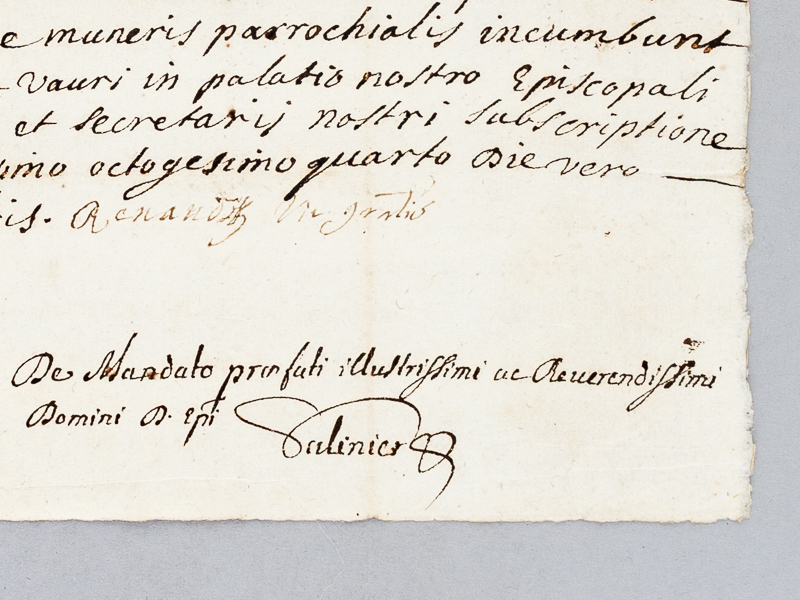 e muneris parrochialis incumbunt
Vauri in palatio nostro Episcopali
et secretarij nostri subscriptione
simo octogesimo quarto Die vero
is.
De Mandato præfati illustrissimi ac Reverendissimi
Domini D. Epi